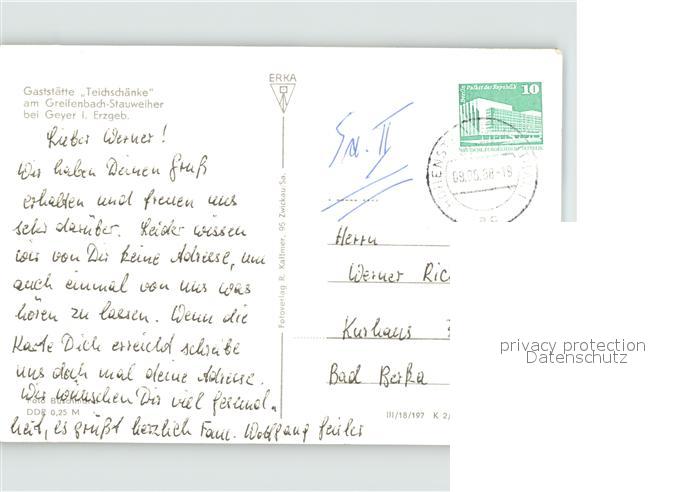 ERKA
Gaststätte „Teichschänke“
am Greifenbach-Stauweiher
bei Geyer i. Erzgeb.
Berlin Palast der Republik 10
08.06.88-18
Lieber Werner!
Wir haben Deinen Gruß
erhalten und freuen uns
sehr darüber. Leider wissen
wir von Dir keine Adresse, um
auch einmal von uns was
hören zu lassen. Wenn die
Karte Dich erreicht schreibe
uns doch mal deine Adresse.
Wir wünschen Dir viel Gesund-
heit, es grüßt herzlich Fam. Wolfgang
DDR 0,25 M
Fotoverlag R. Kallmer, 95 Zwickau/Sa.
II
Herrn
Werner Ric
Kurhaus
Bad Berka
III/18/197 K 2/
privacy protection
Datenschutz